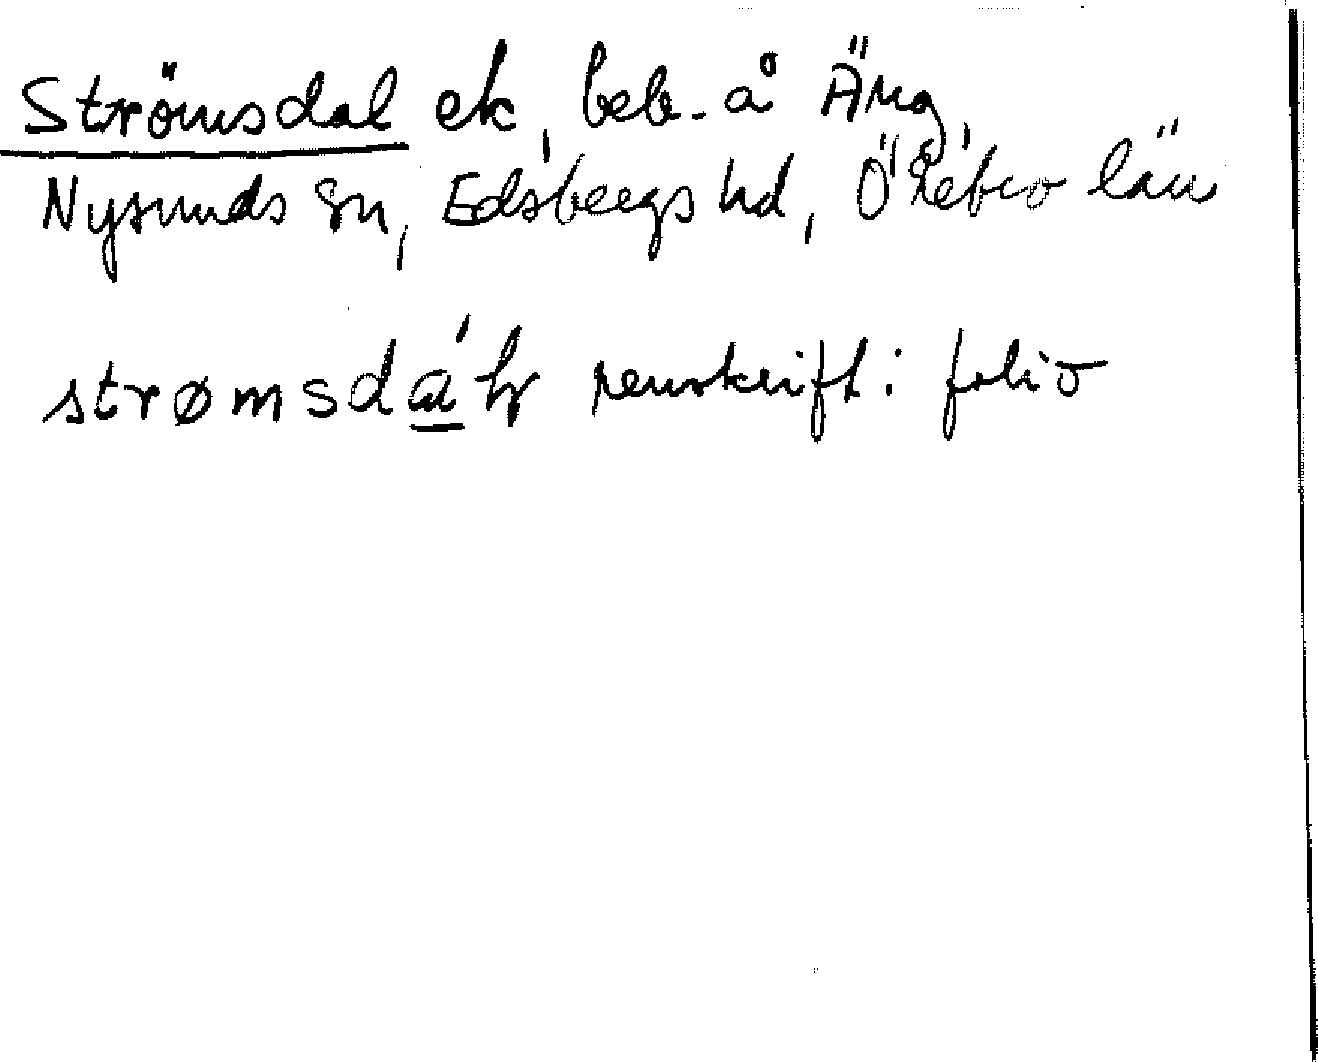 Strömsdal ek, beb. å Äng,
Nysunds sn, Edsbergs hd, Örebro län
strømsdá renskrift i folio